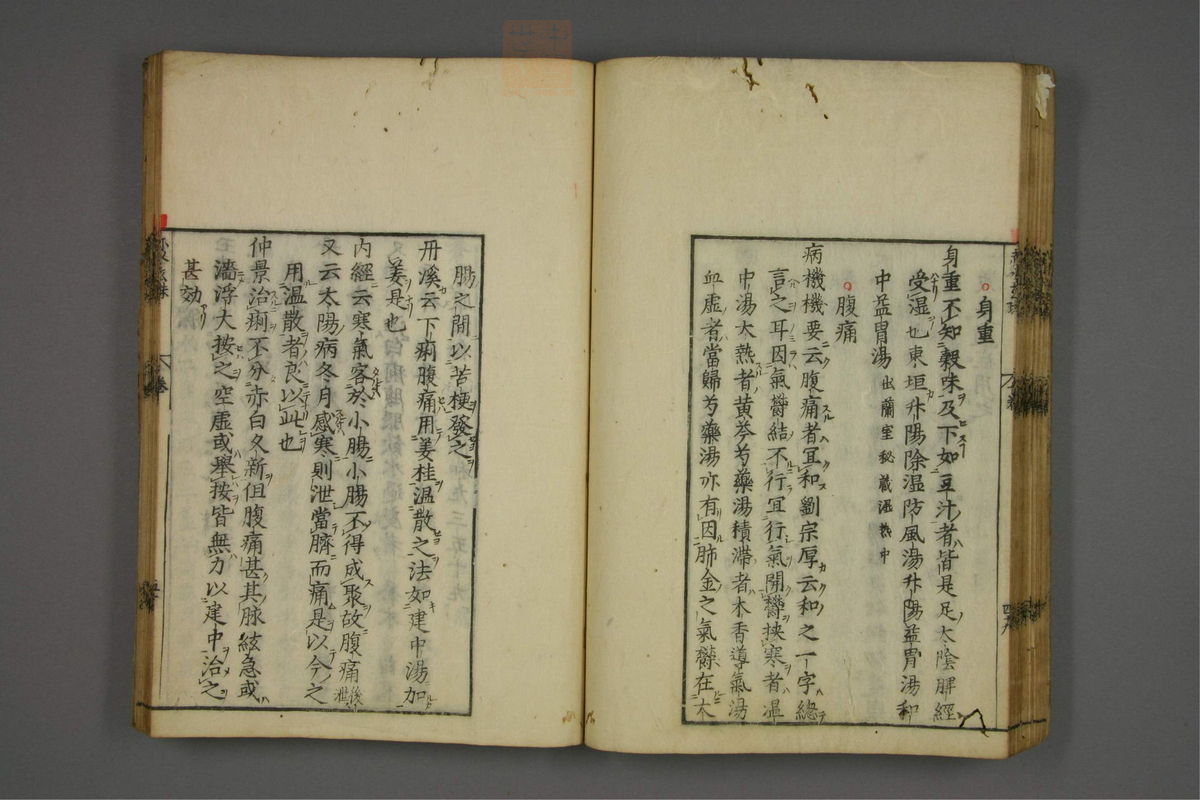 身重
身重不知穀味及下如豆汁者皆是足太陰脾經
受湿也東垣升陽除湿防風湯升陽益胃湯和
中益胃湯出蘭室秘蔵湿熱中
腹痛
病機機要云腹痛者冝和劉宗厚云和之一字總
言之耳因氣欝結不行冝行氣開欝挟寒者温
中湯大熱者黄芩芍藥湯積滞者木香導氣湯
血虚者當歸芍藥湯亦有因肺金之氣欝在大
腸之間以苦梗發之
丹溪云下痢腹痛用姜桂温散之法如建中湯加
姜是也
内經云寒氣客於小腸小腸不得成聚故腹痛後泄
又云太陽病冬月感寒則泄當臍而痛是以今之
用温散者良以此也
仲景治痢不分赤白久新但腹痛甚其脉絃急或
濇浮大按之空虚或舉按皆無力以建中治之
甚効